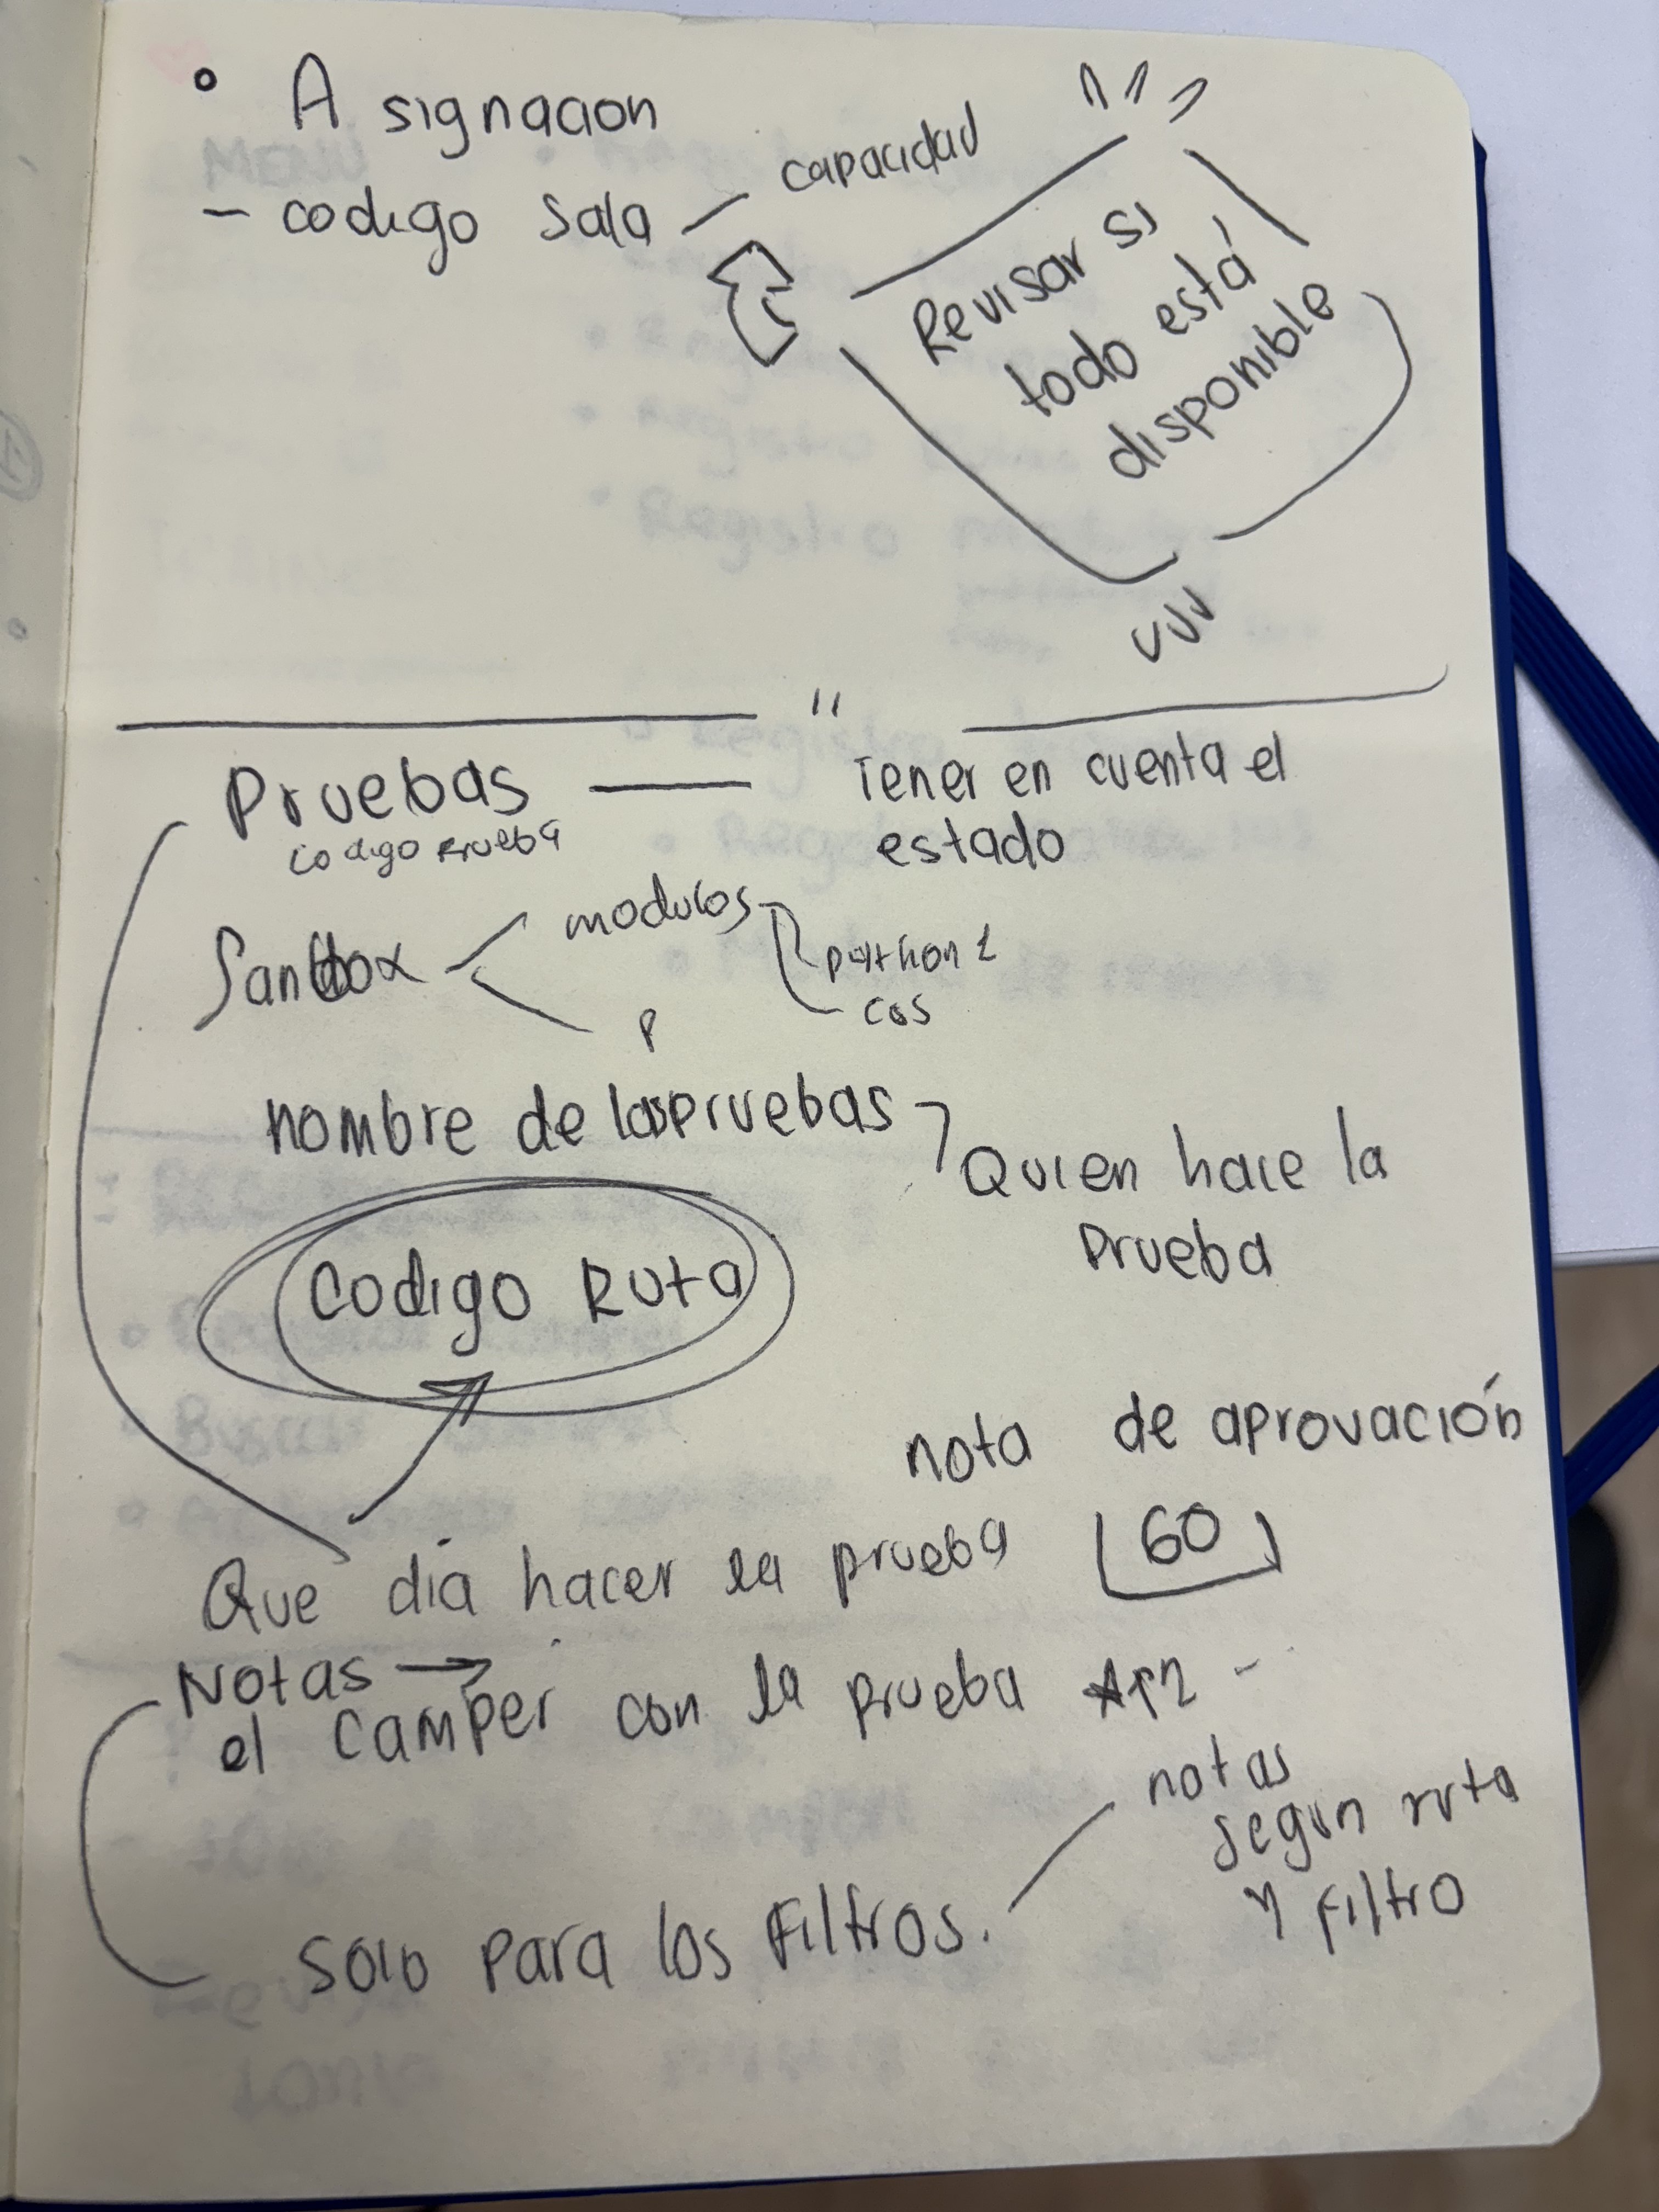 Asignacion
- codigo sala - capacidad
Revisar si
todo está
disponible
Pruebas — Tener en cuenta el
estado
codigo Prueba
modulos
python 1
cas
P
nombre de las pruebas
Quien hace la
Prueba
Codigo Ruta
nota de aprovación
60
Que dia hacer la prueba
Notas →
el camper con la prueba
notas
segun ruta
y filtro
solo para los filtros.